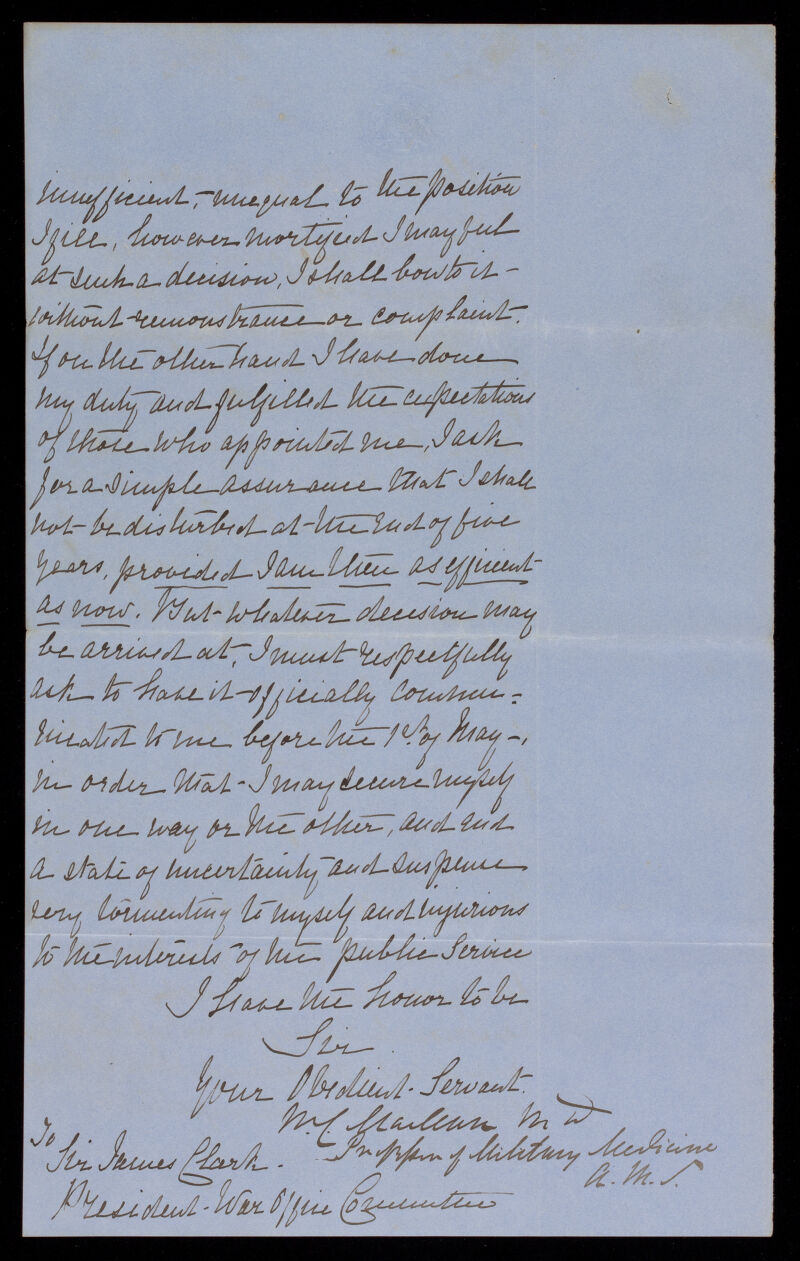 inefficient, - unequal to the position
I fill, however mortified I may feel
at such a decision, I shall bow to it -
without remonstrance or complaint.
If on the other hand I have done
my duty and fulfilled the expectations
of those who appointed me, I ask
for a simple assurance that I shall
not be disturbed at the end of five
years, provided I am then as efficient
as now. But whatever decision may
be arrived at, I must respectfully
ask to have it officially commu=
nicated to me before the 1st of May -,
in order that I may secure myself
in one way or the other, and end
a state of uncertainty and suspense
very tormenting to myself and injurious
to the interests of the public Service
I have the honor to be
Sir
Your Obedient Servant.
W. C. Maclean M D
Professor of Military Medicine
A. M. S.
To
Sir James Clark.
President War Office Committee